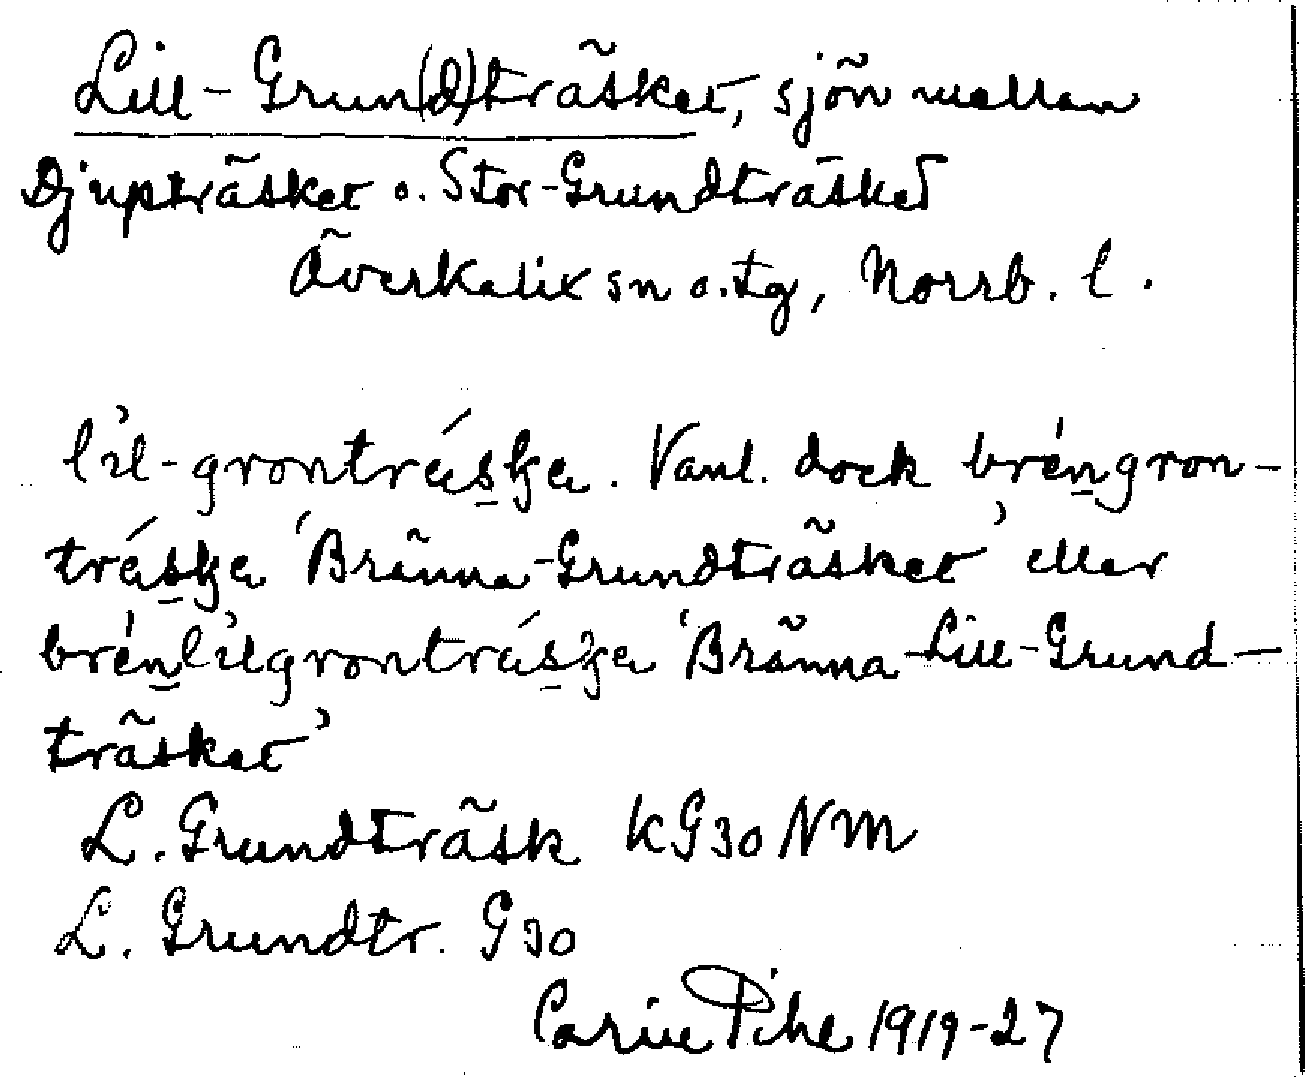 Lill-Grun(d)träsket, sjön mellan
Djupträsket o. Stor-Grundträsket
Överkalix sn o. tg, Norrb. l.
lìl-grontráska. Vanl. dock bréngron-
tráska 'Bränna-Grundträsket' eller
brénlìlgrontráska 'Bränna-Lill-Grund-
träsket'
L. Grundträsk KG30NM
L. Grundtr. G30
Carin Pihl 1919-27